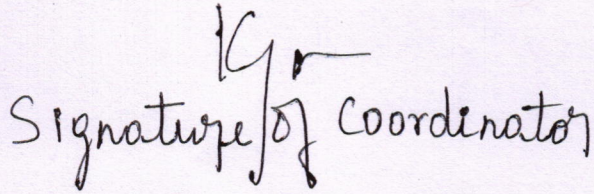 Signature of Coordinator